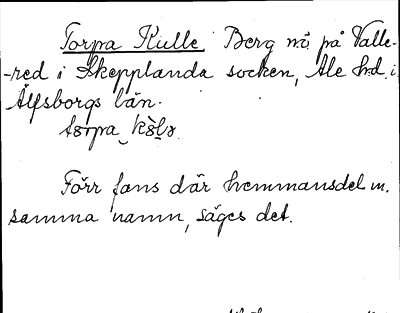 Torpa Kulle Berg nö på Valle-
-red i Skepplanda socken, Ale hd. i
Älfsborgs län.
Förr fans där hemmansdel m.
samma namn, säges det.